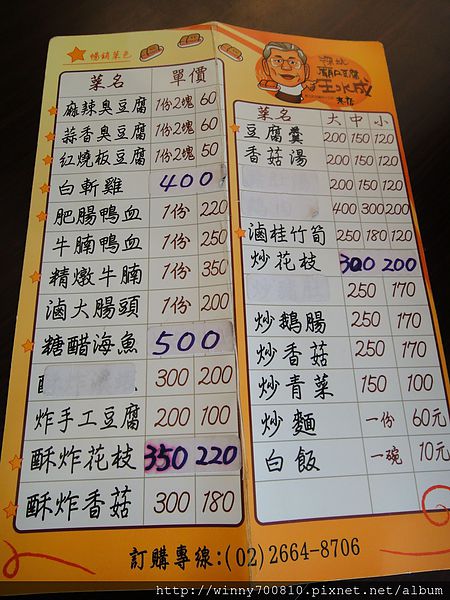 暢銷菜色
菜名 單價
麻辣臭豆腐 1份2塊 60
蒜香臭豆腐 1份2塊 60
紅燒板豆腐 1份2塊 50
白斬雞 400
肥腸鴨血 1份 220
牛腩鴨血 1份 250
精燉牛腩 1份 350
滷大腸頭 1份 200
糖醋海魚 500
300 200
炸手工豆腐 200 100
酥炸花枝 350 220
酥炸香菇 300 180
深坑
廟口豆腐
王水成
本店
菜名 大 中 小
豆腐羹 200 150 120
香菇湯 200 150 120
200 150 120
400 300 200
滷桂竹筍 250 180 120
炒花枝 300 200
250 170
炒鵝腸 250 170
炒香菇 250 170
炒青菜 150 100
炒麵 一份 60元
白飯 一碗 10元
訂購專線:(02)2664-8706
http://winny700810.pixnet.net/album